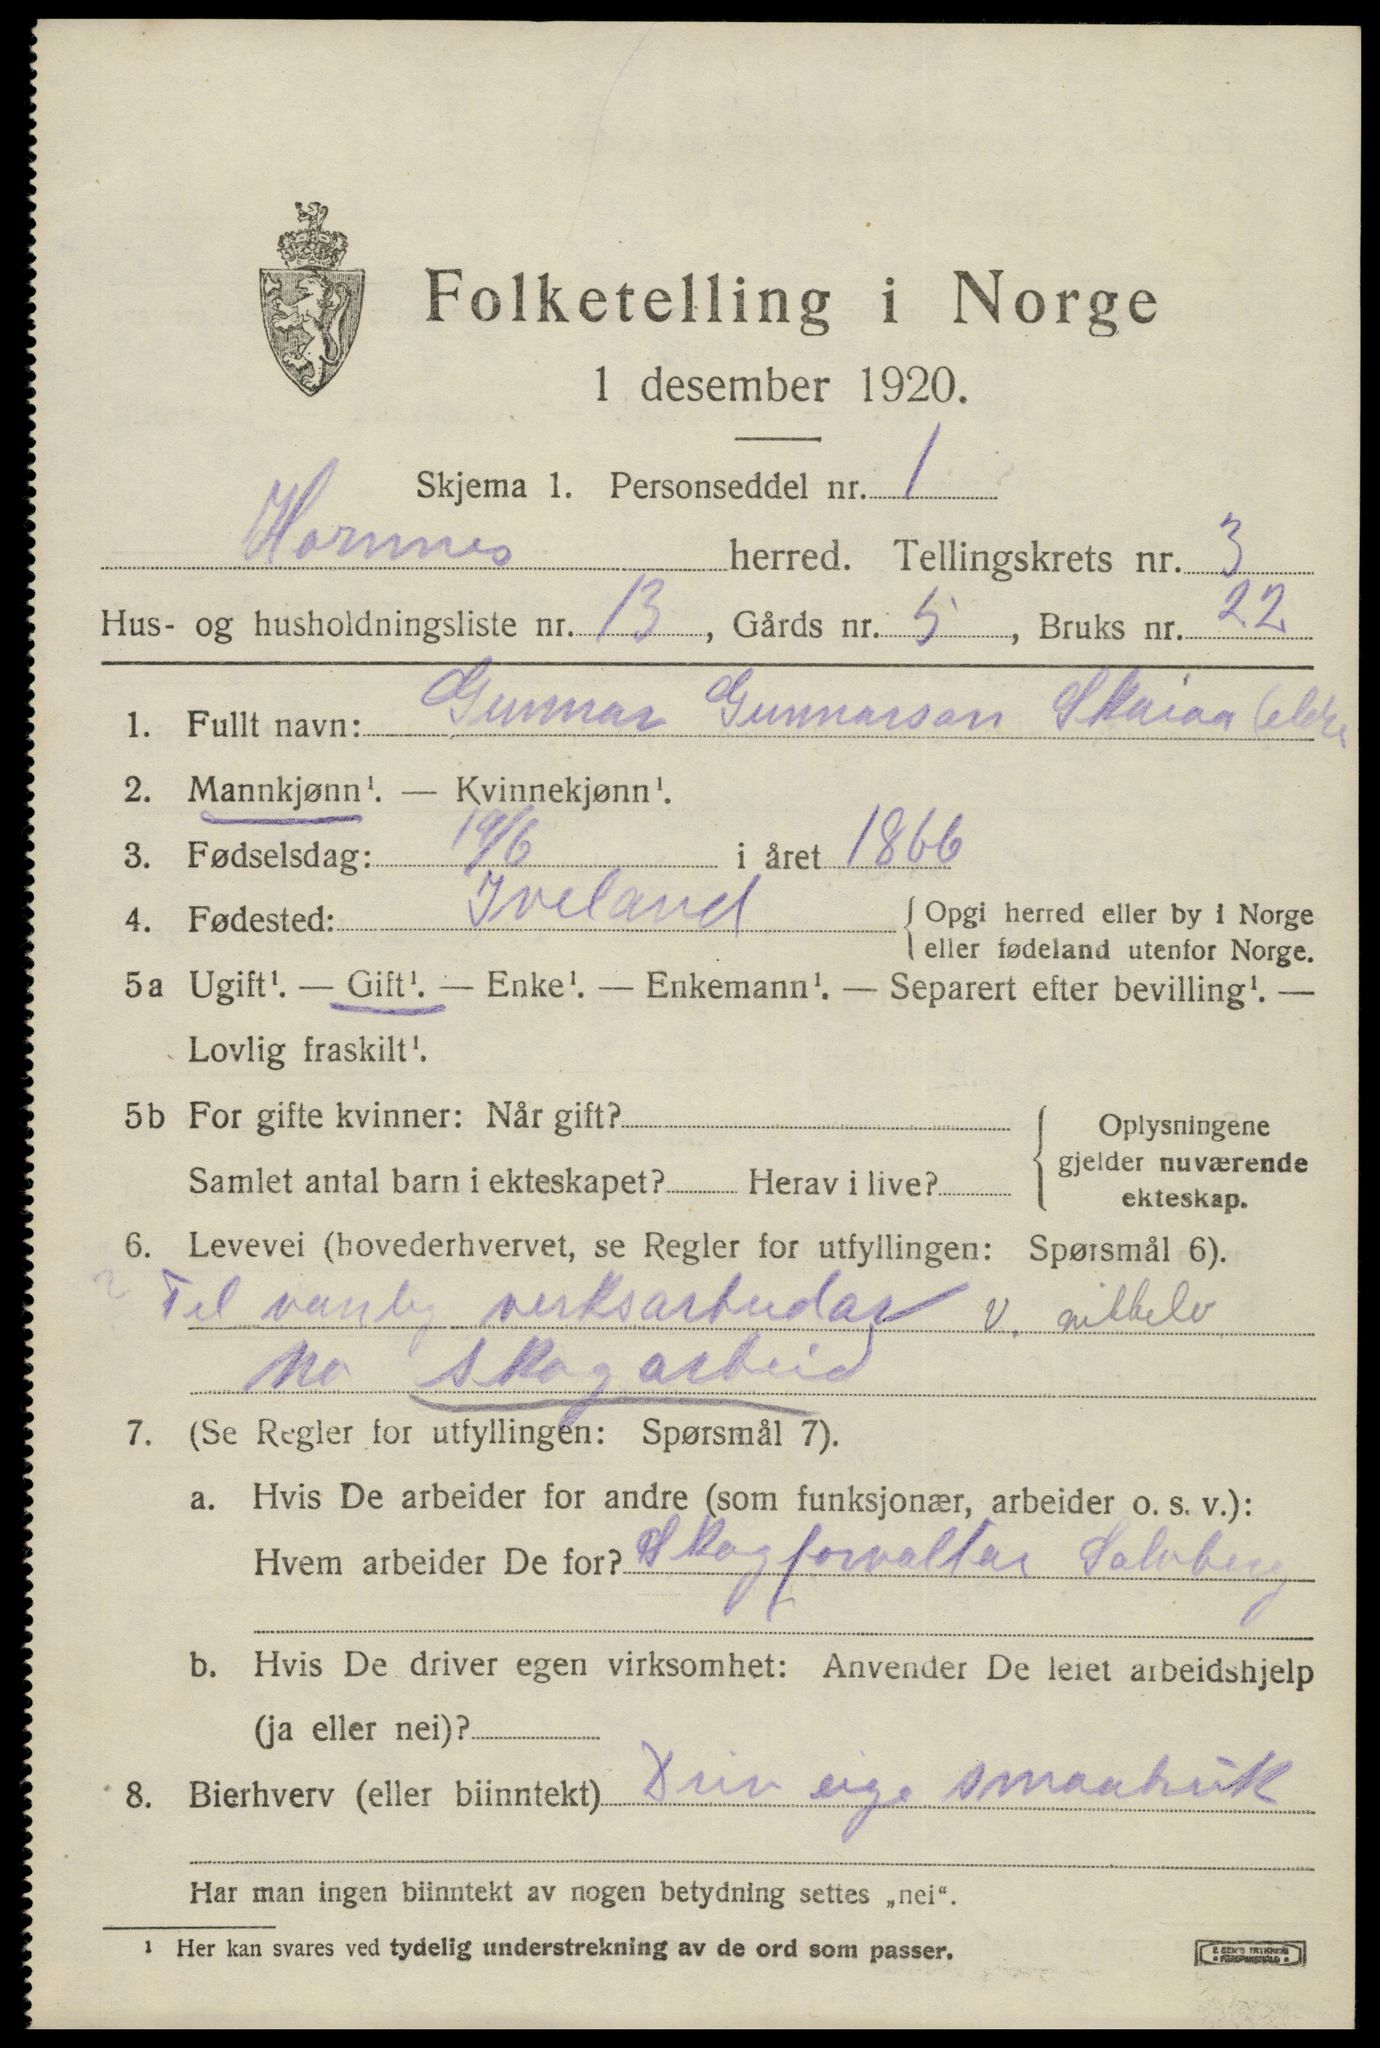 Folketelling i Norge
1 desember 1920.
Skjema 1. Personseddel nr. 1
Hornnes herred. Tellingskrets nr. 3
Hus- og husholdningsliste nr. 13, Gårds nr. 5, Bruks nr. 22
1. Fullt navn: Gunnar Gunnarson Skaiaa (eldre
2. Mannkjønn¹. — Kvinnekjønn¹.
3. Fødselsdag: 19/6 i året 1866
4. Fødested: Iveland { Opgi herred eller by i Norge
eller fødeland utenfor Norge.
5a Ugift¹. — Gift¹. — Enke¹. — Enkemann¹. — Separert efter bevilling¹. —
Lovlig fraskilt¹.
5b For gifte kvinner: Når gift?
Samlet antal barn i ekteskapet? Herav i live?
{ Oplysningene
gjelder nuværende
ekteskap.
6. Levevei (hovederhvervet, se Regler for utfyllingen: Spørsmål 6).
Til vanleg verksarbeidar v. nikkelv
No skogarbeid
7. (Se Regler for utfyllingen: Spørsmål 7).
a. Hvis De arbeider for andre (som funksjonær, arbeider o. s. v.):
Hvem arbeider De for? Skogforvaltar Salvberg
b. Hvis De driver egen virksomhet: Anvender De leiet arbeidshjelp
(ja eller nei)?
8. Bierhverv (eller biinntekt) Driv eige smaabruk
Har man ingen biinntekt av nogen betydning settes „nei“.
¹ Her kan svares ved tydelig understrekning av de ord som passer.